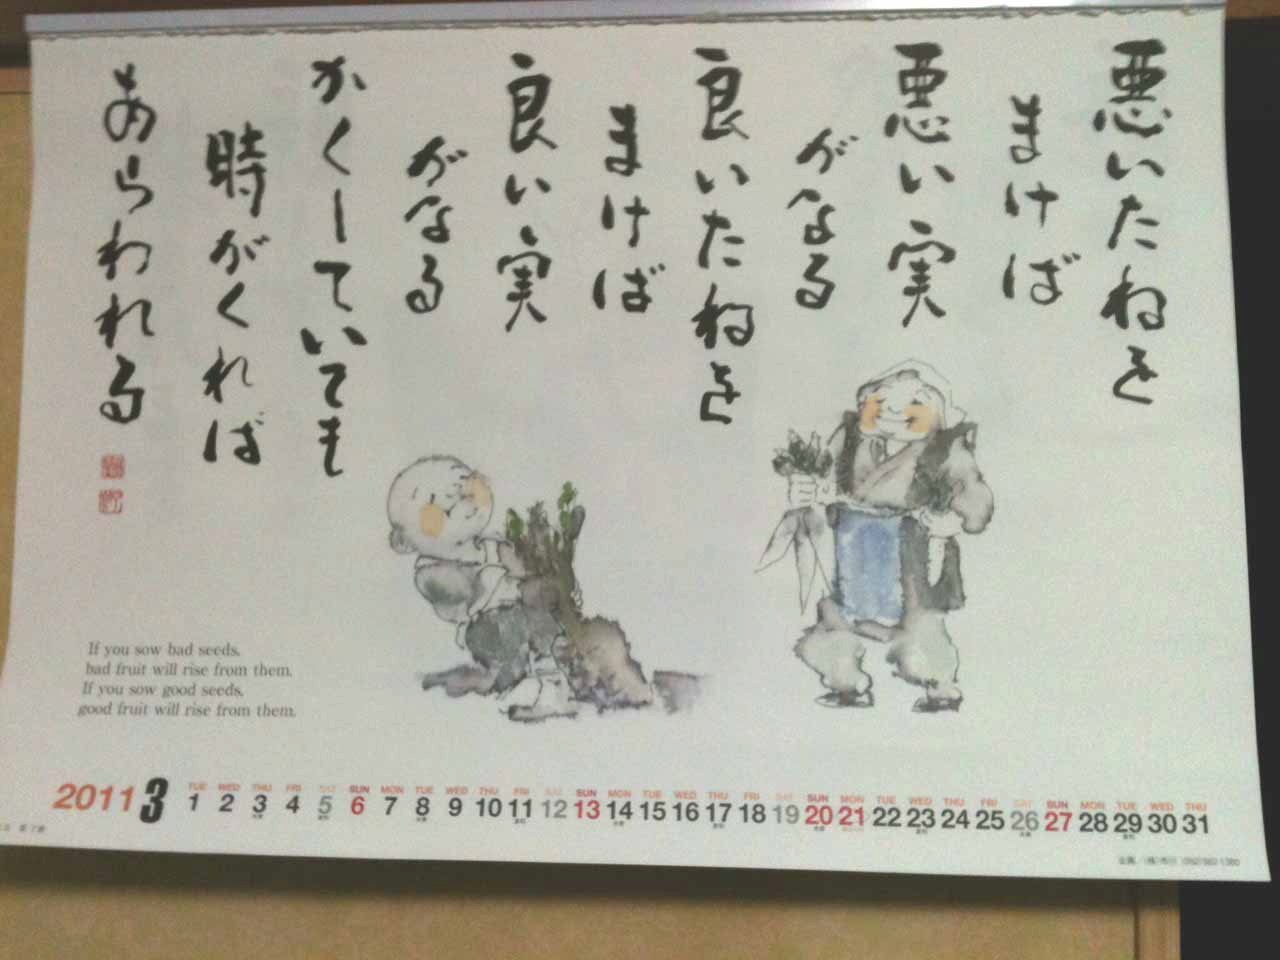 悪いたねを
まけば
悪い実
がなる
良いたねを
まけば
良い実
がなる
かくしていても
時がくれば
あらわれる
If you sow bad seeds,
bad fruit will rise from them.
If you sow good seeds,
good fruit will rise from them.
2011 3
TUE WED THU FRI SAT SUN MON TUE WED THU FRI SAT SUN MON TUE WED THU FRI SAT SUN MON TUE WED THU FRI SAT SUN MON TUE WED THU
1 2 3 4 5 6 7 8 9 10 11 12 13 14 15 16 17 18 19 20 21 22 23 24 25 26 27 28 29 30 31